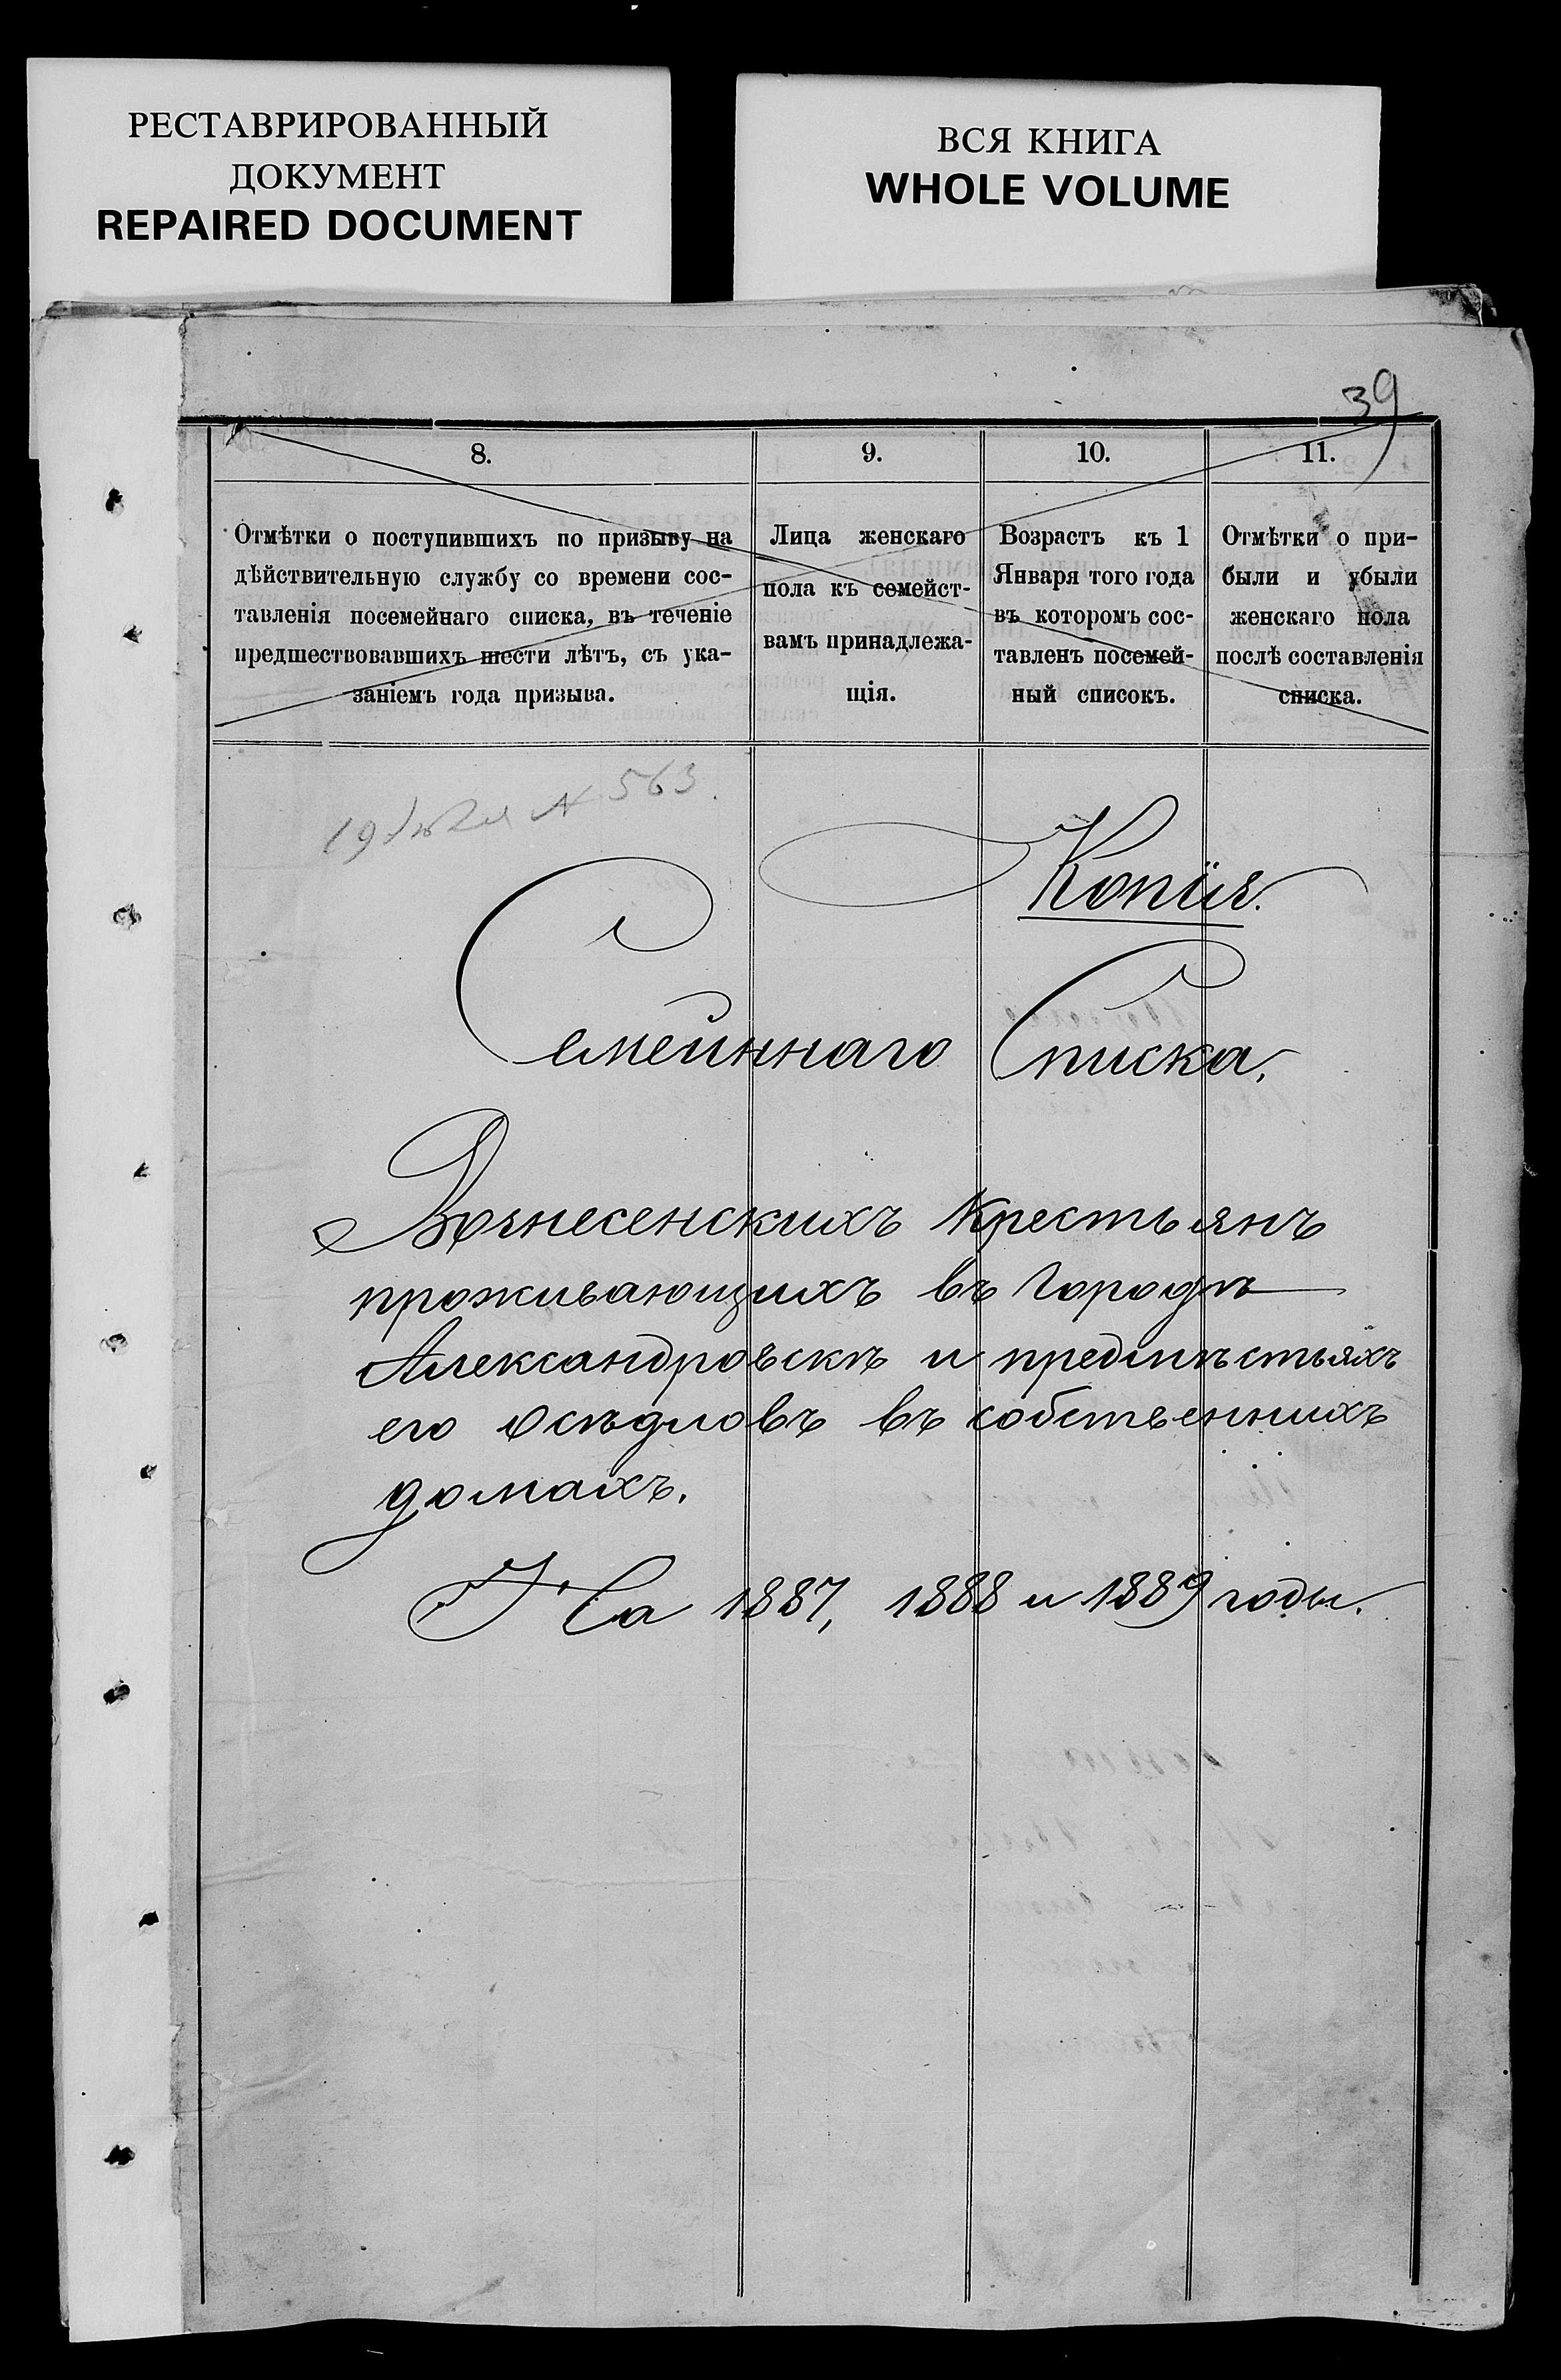 РЕСТАВРИРОВАННЫЙ
ДОКУМЕНТ
REPAIRED DOCUMENT
ВСЯ КНИГА
WHOLE VOLUME
39
8.
Отмѣтки о поступившихъ по призыву на
дѣйствительную службу со времени сос-
тавленія посемейнаго списка, въ теченіе
предшествовавшихъ шести лѣтъ, съ ука-
заніемъ года призыва.
9.
Лица женскаго
пола къ семейст-
вамъ принадлежа-
щія.
10.
Возрастъ къ 1
Января того года
въ которомъ сос-
тавленъ посемей-
ный списокъ.
11.
Отмѣтки о при-
были и убыли
женскаго пола
послѣ составленія
списка.
19 N 563.
Копія.
Семейннаго Списка.
Вознесенскихъ крестьянъ
проживающихъ въ Городѣ
Александровскѣ и предмѣстьяхъ
его осѣдловъ въ собственныхъ
домахъ.
На 1887, 1888 и 1889 годы.